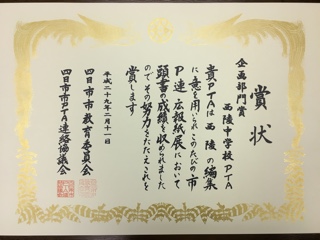 賞状
企画部門賞
西陵中学校PTA
貴PTAは西陵の編集
に意を用いられこのたびの市
P連広報紙展において
頭書の成績を収めれました
のでその努力をたたえこれを
賞します
平成二十九年二月十一日
四日市市教育委員会
四日市市PTA連絡協議会